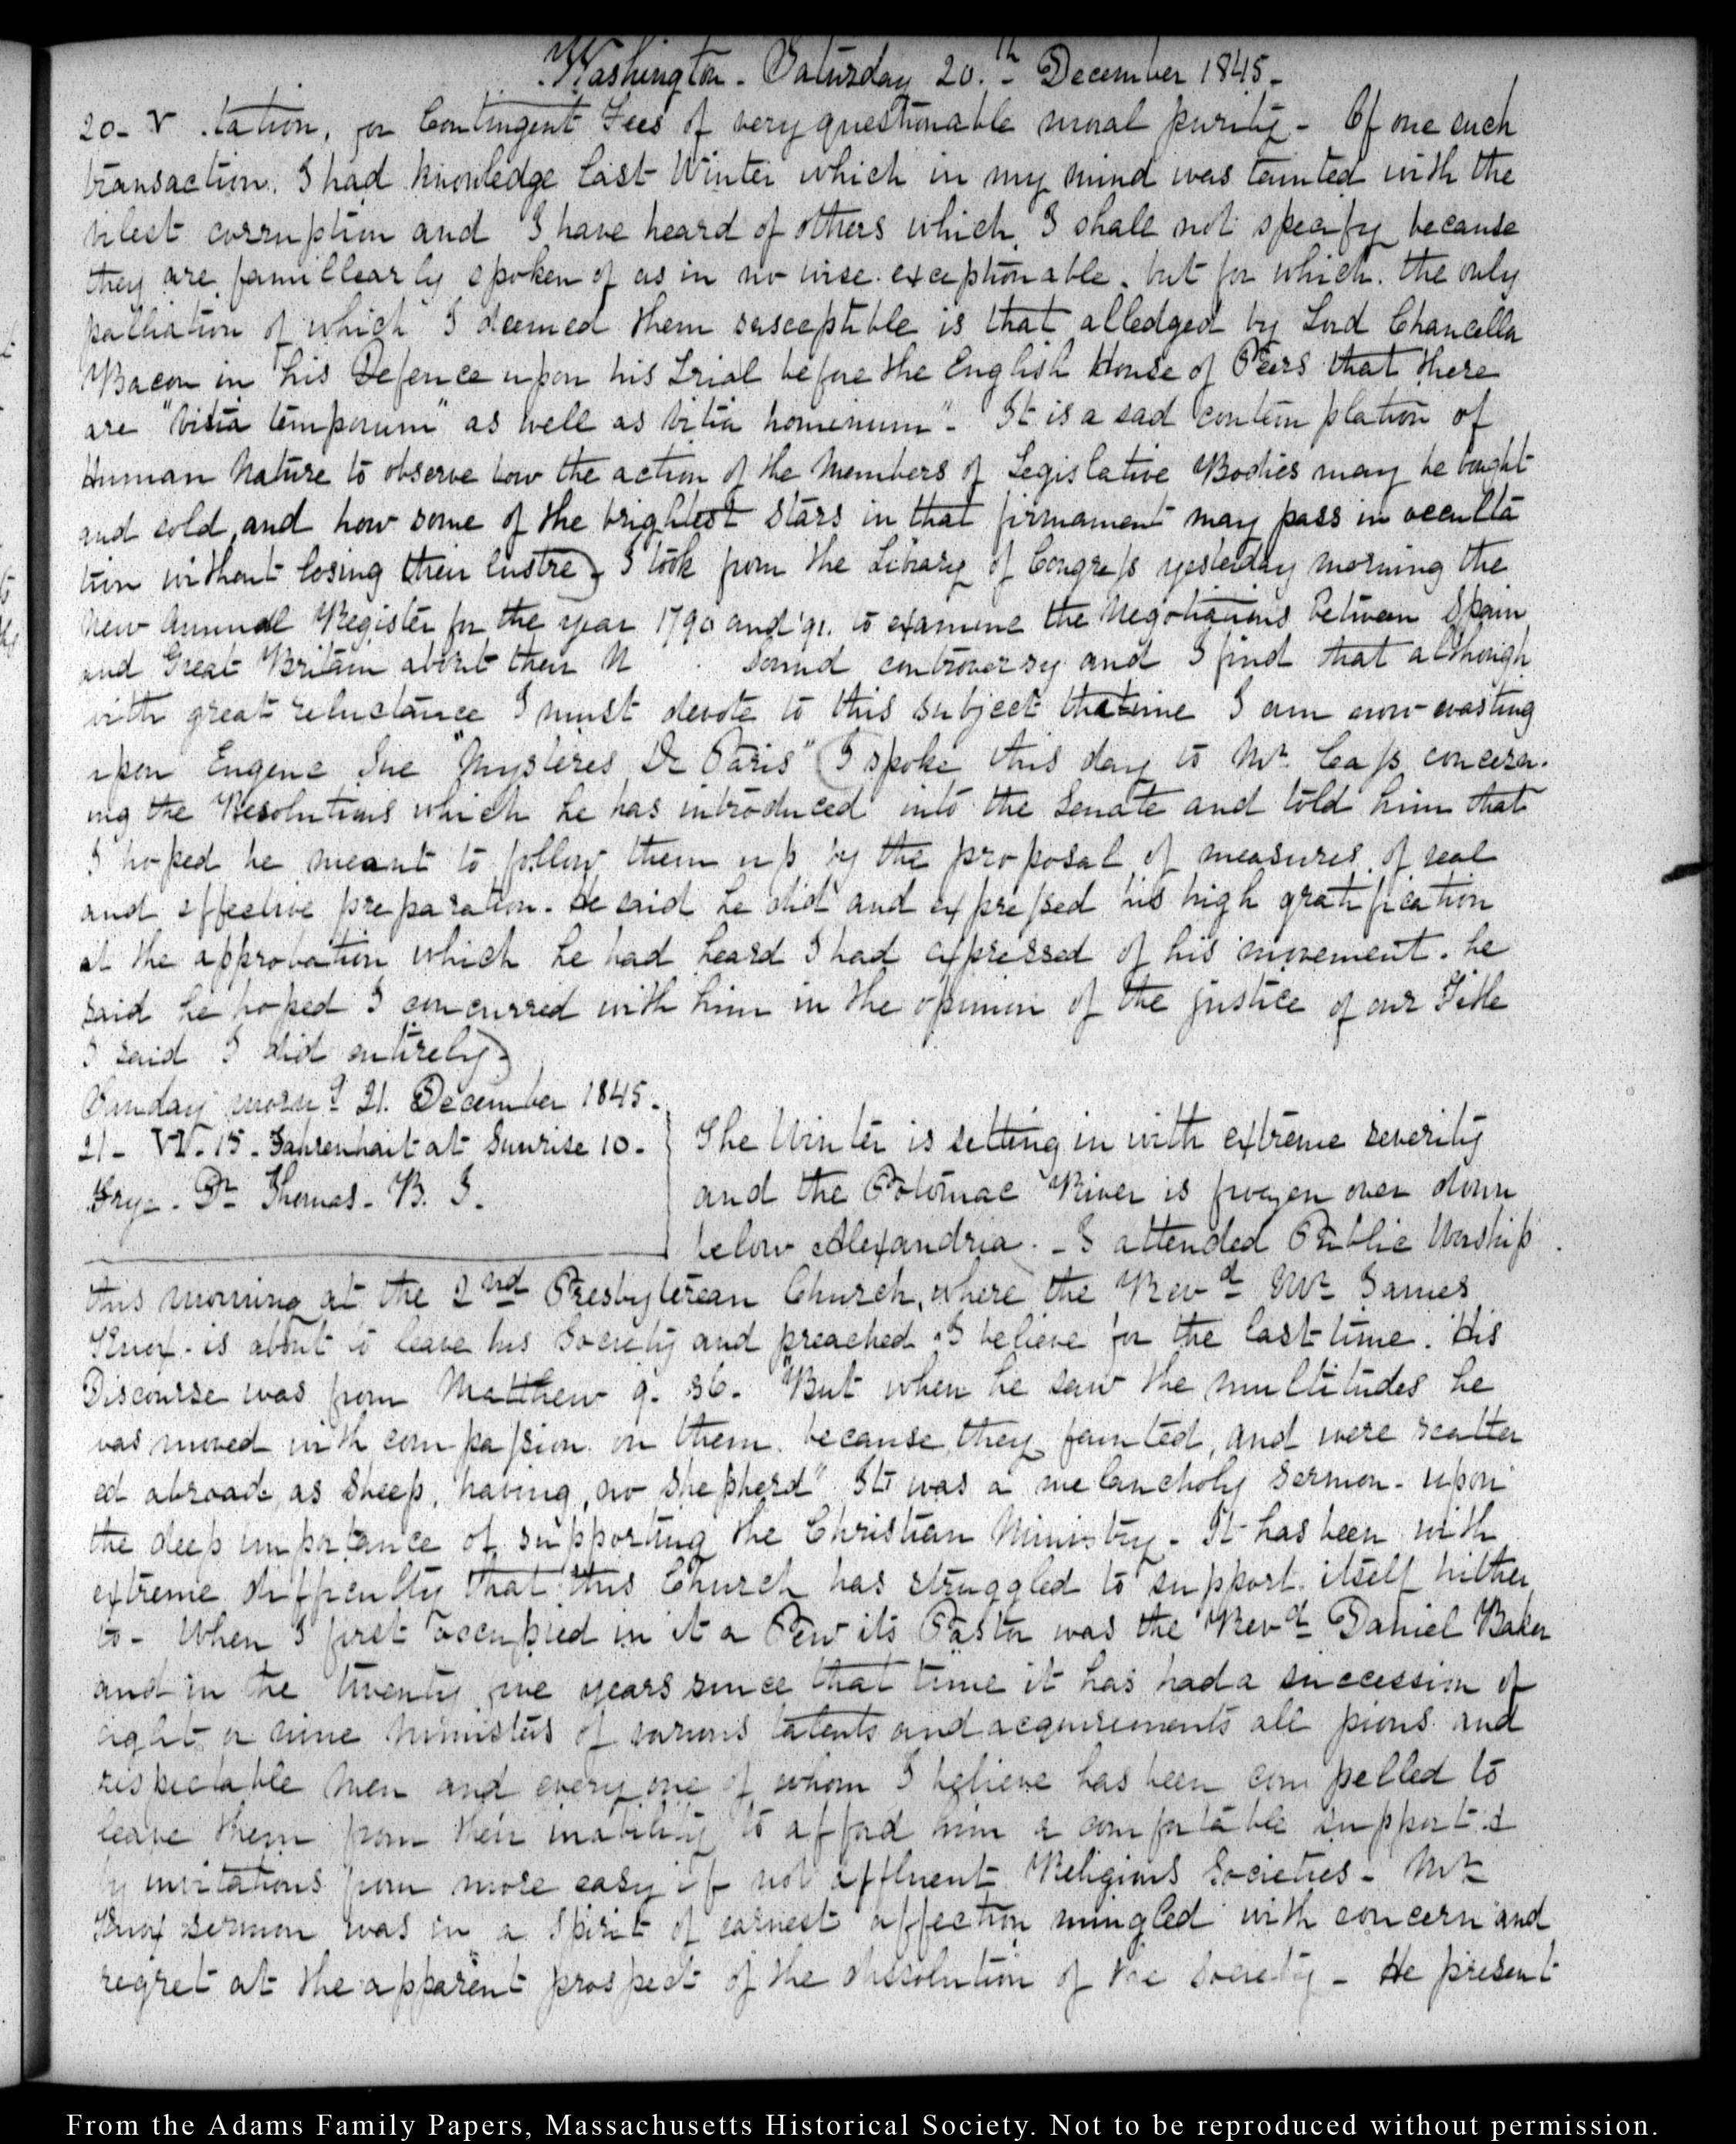 Washington - Saturday 20.th December 1845 -
20 - V. tation, for Contingent Fees of very questionable moral purity - Of one such
transaction. I had knowledge last Winter which in my mind was tainted with the
vilest corruption and I have heard of others which, I shall not specify because
they are famillearly spoken of as in no wise exceptionable. but for which. the only
palliation of which I deemed them susceptible is that alledged by Lord Chancellor
Bacon in his Defence upon his Trial before the English House of Peers that there
are "vitia temporum" as well as vitia hominum" - It is a sad contemplation of
Human Nature to observe how the action of the Members of Legislative Bodies may be bought
and sold, and how some of the brightest stars in that firmament may pass in occulta
tion without losing their lustre) I took from the Library of Congress yesterday morning the
New Annual Register for the year 1790 and '91. to examine the Negotiations between Spain
and Great Britain about their N . Sound controversy and I find that although
with great reluctance I must devote to this subject the time I am now wasting
upon Eugene Sue "Mysteres De Paris" (I spoke this day to Mr. Cass concern-
ing the Resolutions which he has introduced into the Senate and told him that
I hoped he meant to follow them up by the proposal of measures of real
and effective preparation. He said he did and expressed his high gratification
at the approbation which he had heard I had expressed of his movement. he
said he hoped I concurred with him in the opinion of the justice of our Title
I said I did entirely)
Sunday morng 21. December 1845.
21 - VI. 15 - Fahrenhait at Sunrise 10 -
Frye - Dr Thomas - B. I.
The Winter is setting in with extreme severity
and the Potomac River is frozen over down
below Alexandria. - I attended Public Worship
this morning at the 2nd Presbyterean Church, where the Revd Mr James
Knox - is about to leave his Society and preached I believe for the last time. His
Discourse was from Matthew 9. 36. "But when he saw the multitudes he
was moved with compassion on them. because they fainted, and were scatter
ed abroad, as sheep, having, no shepherd" It was a melancholy sermon - upon
the deep importance of supporting the Christian Ministry - It has been with
extreme difficulty that this Church has struggled to support itself hither
to - When I first occupied in it a Pew its Pastor was the Revd Daniel Baker
and in the twenty five years since that time it has had a succession of
eight or nine Ministers of various talents and acquirements all pious and
respectable men and every one of whom I believe has been compelled to
leave them from their inability to afford him a comfortable support &
by invitations from more easy if not affluent Religious Societies - Mr
Knox sermon was in a spirit of earnest affection mingled with concern and
regret at the apparent prospect of the dissolution of the society - He present
From the Adams Family Papers, Massachusetts Historical Society. Not to be reproduced without permission.